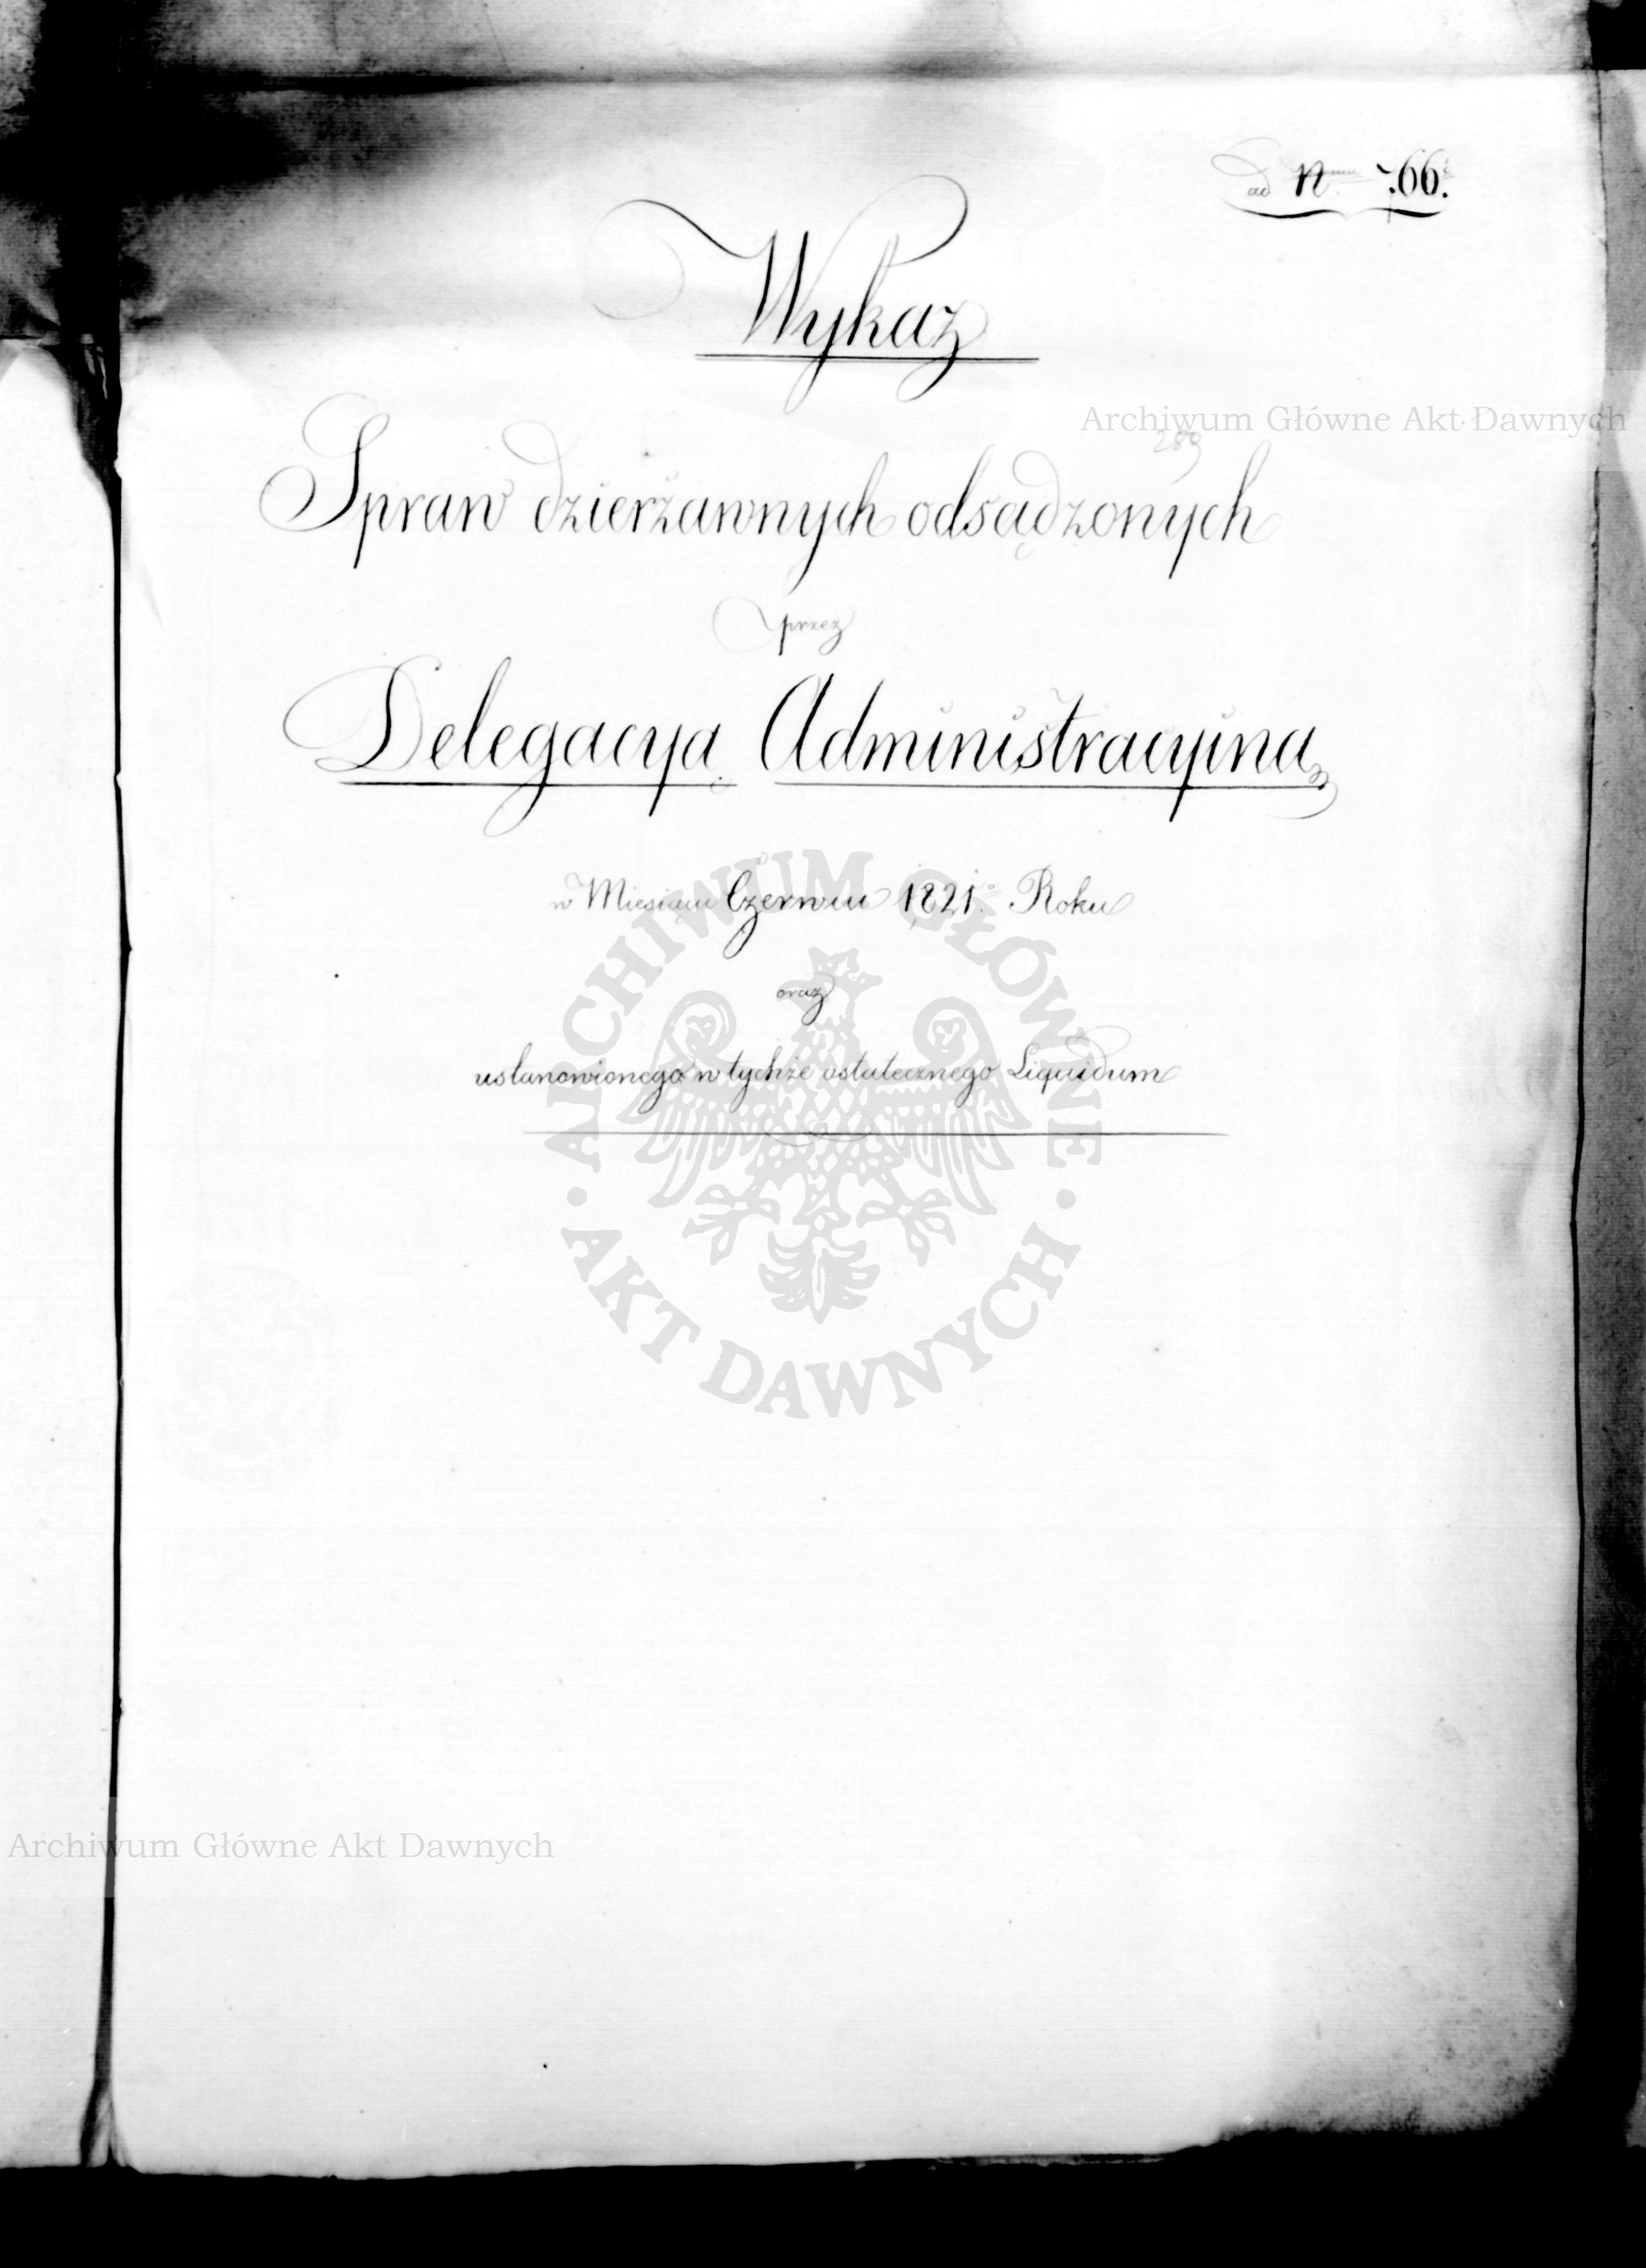 ad Nrum 766.
Wykaz
Archiwum Główne Akt Dawnych
289
Spraw dzierżawnych odsądzonych
przez
Delegacyą Administracyina
w Miesiącu Czerwcu 1821o Roku
oraz
ustanowionego w tychże ostatecznego Liquidum
ARCHIWUM GŁÓWNE
· AKT DAWNYCH ·
Archiwum Główne Akt Dawnych